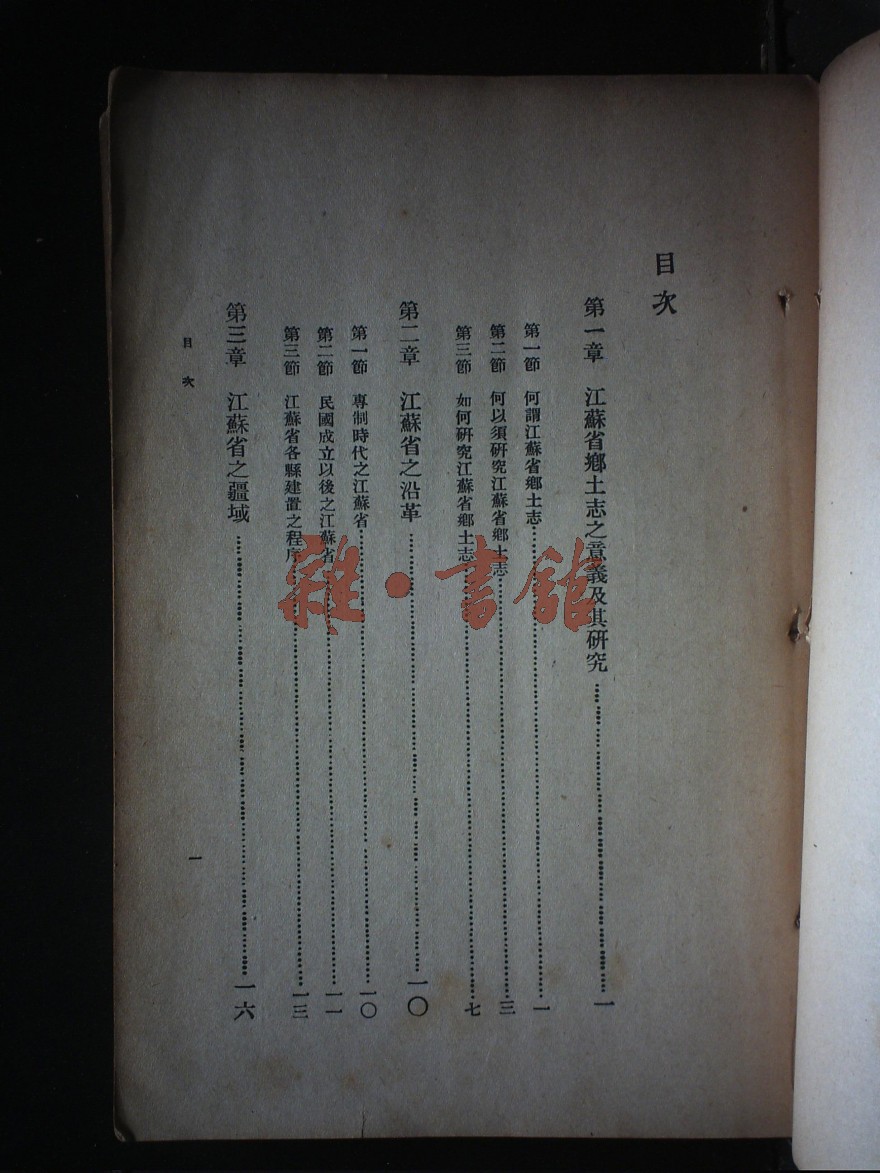 目次
第一章　江蘇省鄉土志之意義及其研究……一
第一節　何謂江蘇省鄉土志……一
第二節　何以須研究江蘇省鄉土志……三
第三節　如何研究江蘇省鄉土志……七
第二章　江蘇省之沿革……一〇
第一節　專制時代之江蘇省……一〇
第二節　民國成立以後之江蘇省……一一
第三節　江蘇省各縣建置之程序……一三
第三章　江蘇省之疆域……一六
目次
一
雜·書館